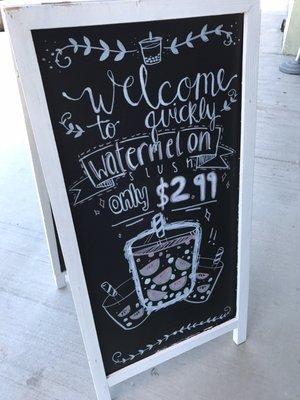 Welcome
to quickly
Watermelon
SLUSH
only $2.99